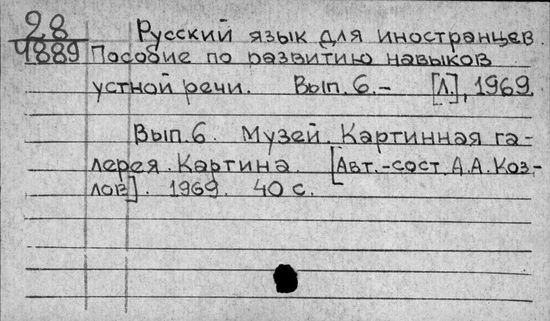 28 Русский язык для иностранцев.
4889 Пособие по развитию навыков
устной речи. Вып. 6.- [Л.], 1969.
Вып. 6. Музей. Картинная га-
лерея. Картина. [Авт.-сост. А.А. Коз-
лов]. 1969. 40 с.